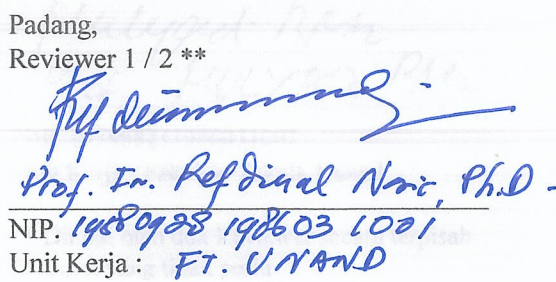 Padang,
Reviewer 1 / 2 **
Prof. Ir. Refdinal Nazir, Ph.D -
NIP. 19580928 198603 1001
Unit Kerja : FT. UNAND